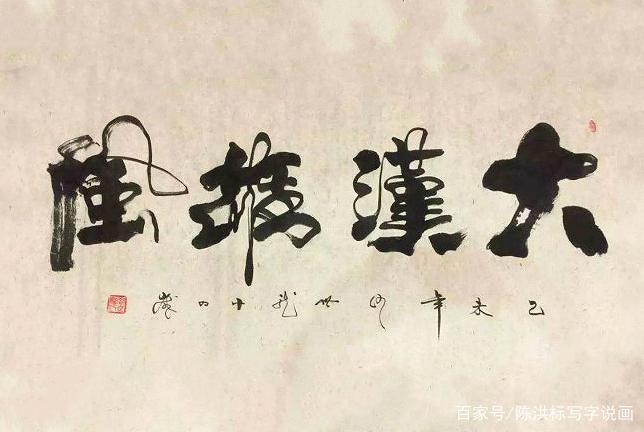 大漢雄風
未年
十四歲
百家号/陈洪标写字说画